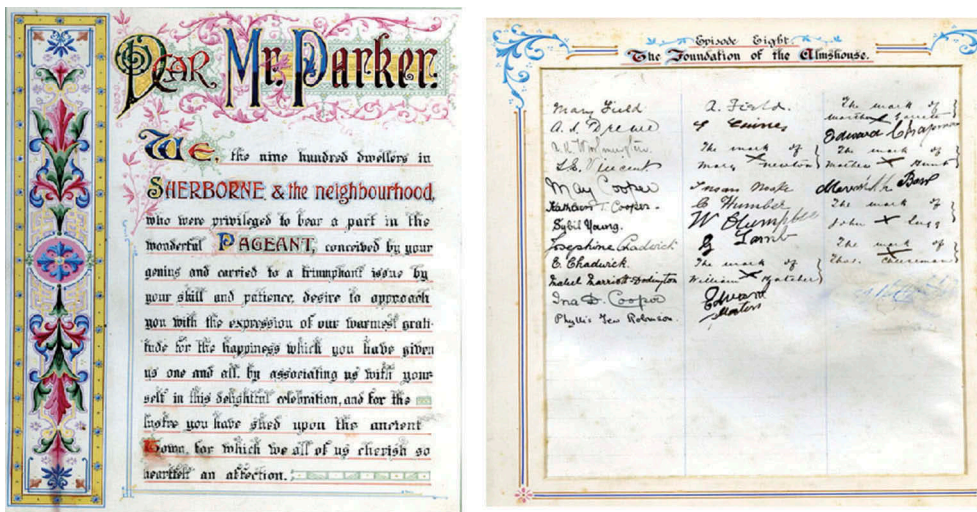 Dear Mr. Parker.
We, the nine hundred dwellers in
SHERBORNE & the neighbourhood,
who were privileged to bear a part in the
wonderful PAGEANT, conceived by your
genius and carried to a triumphant issue by
your skill and patience, desire to approach
you with the expression of our warmest grati-
tude for the happiness which you have given
us one and all, by associating us with your-
self in this delightful celebration, and for the
lustre you have shed upon the ancient
Town, for which we all of us cherish so
heartfelt an affection.
Episode Eight.
The Foundation of the Almshouse.
Mary Field
A. S. Drewe
L. E. Vincent
May Cooper
Cooper.
Sybil Young.
Josephine Chadwick
E. Chadwick.
Mabel Marriott-Dodington
Ina D. Cooper
Phyllis Tew Robinson.
A. Field.
The mark of
Mary X Newton
Susan
W Plumptre
Lamb
The mark of
William X
Edward
The mark of
Martha
Edward Chapman
The mark of
Martha X
The mark of
John X
The mark of
Thos. X